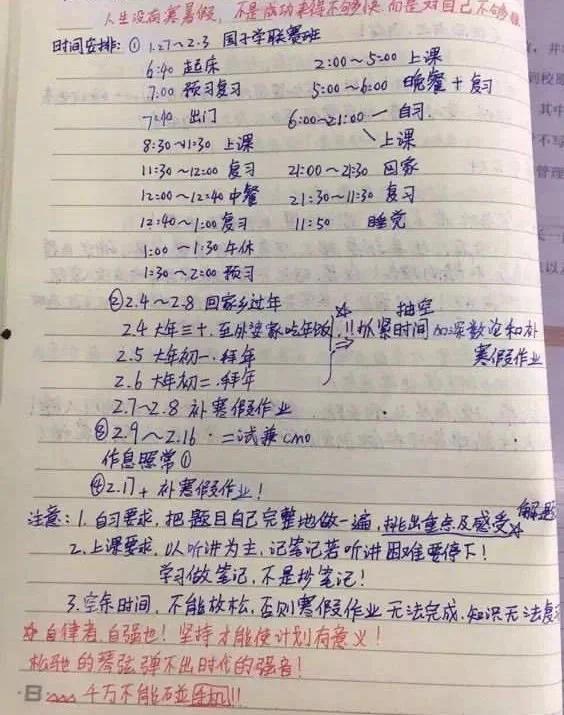 人生没有寒暑假，不是成功来得不够快，而是对自己不够狠
时间安排：① 1.27～2.3 国子学联赛班
6:40 起床 2:00～5:00 上课
7:00 预习复习 5:00～6:00 晚餐+复习
7:40 出门 6:00～21:00 一 自习
8:30～11:30 上课 上课
11:30～12:00 复习 21:00～21:30 回家
12:00～12:40 中餐 21:30～11:30 复习
12:40～1:00 复习 11:50 睡觉
1:00～1:30 午休
1:30～2:00 预习
② 2.4～2.8 回家乡过年 抽空
2.4 大年三十．至外婆家吃年饭 !!抓紧时间加深数论和补
2.5 大年初一．拜年 寒假作业
2.6 大年初二．拜年
2.7～2.8 补寒假作业
③ 2.9～2.16．二试兼CMO
作息照常①
④ 2.17+ 补寒假作业！
注意：1. 自习要求，把题目自己完整地做一遍，挑出重点及感受 解题
2. 上课要求，以听讲为主，记笔记若听讲困难要停下！
学习做笔记，不是抄笔记！
3. 空余时间，不能放松，否则寒假作业无法完成，知识无法复
☆ 自律者，自强也！坚持才能使计划有意义！
松弛的琴弦弹不出时代的强音！
千万不能碰手机!!